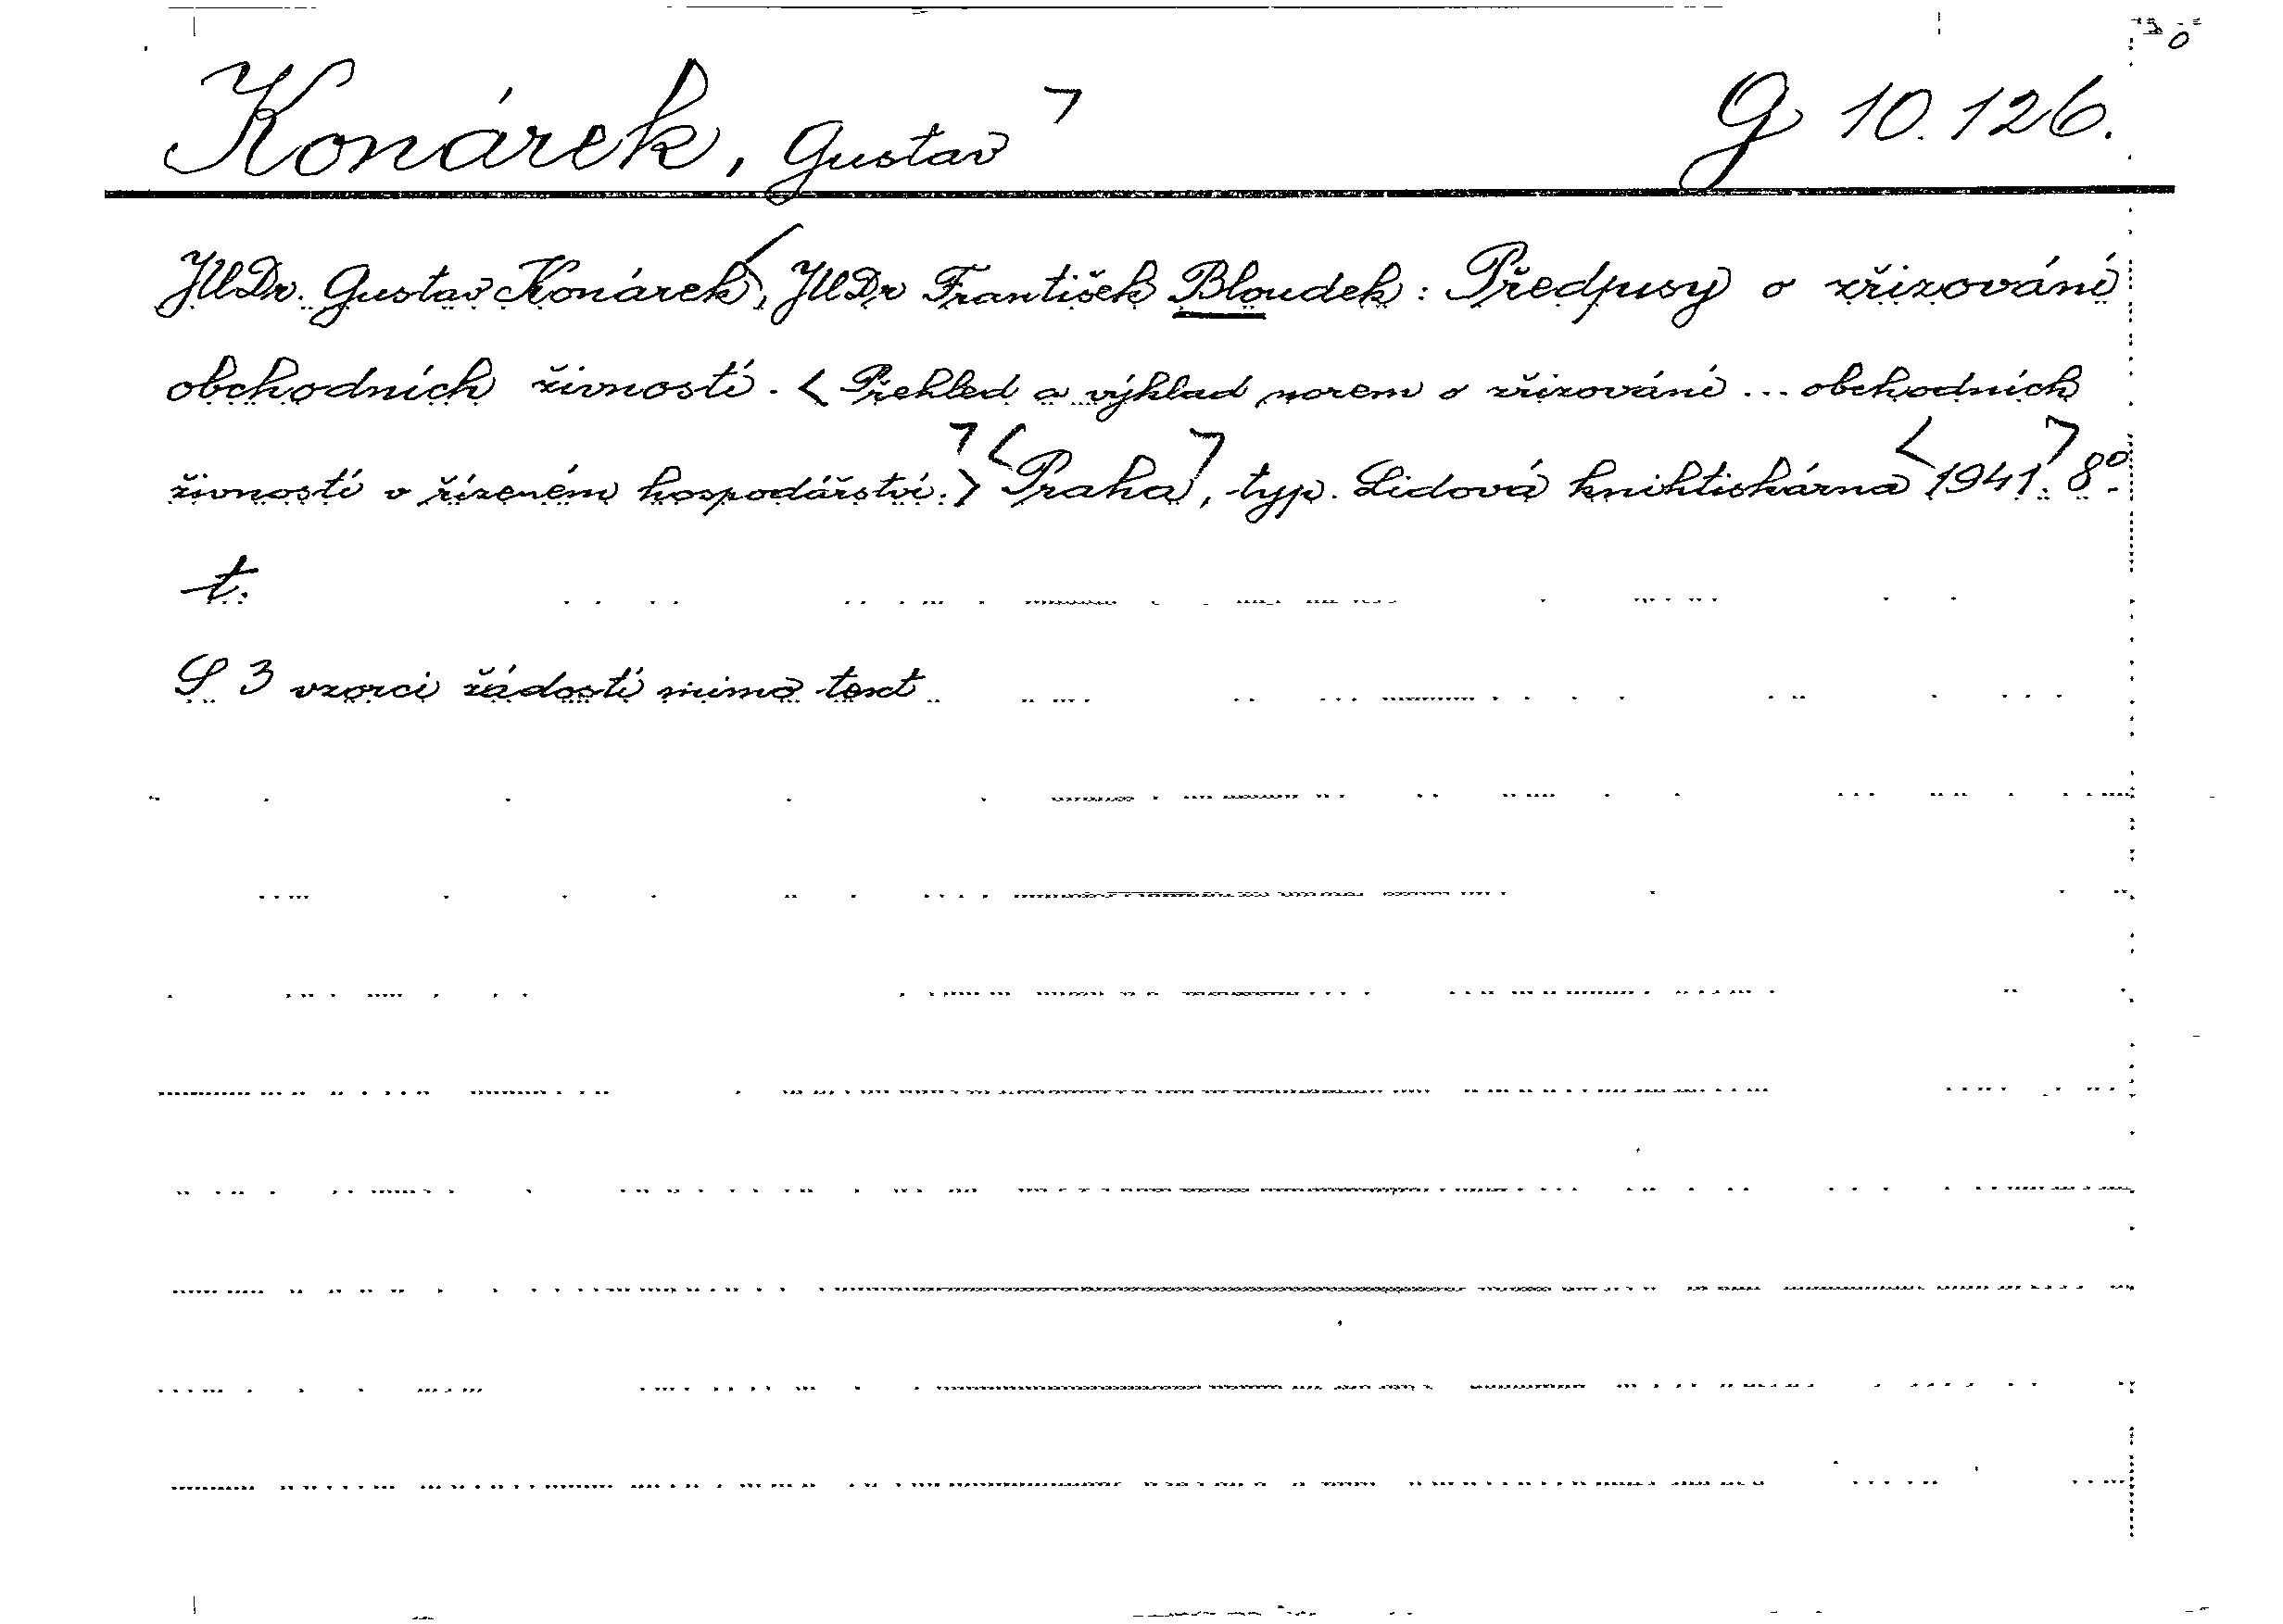 Konárek, Gustav ┐ G 10.126.
JUDr. Gustav Konárek, JUDr František Bloudek: Předpisy o zřizování
obchodních živností. < Přehled a výklad norem o zřizování ... obchodních
živností v řízeném hospodářství. > Praha, typ. Lidová knihtiskárna 1941. 8°.
t.
S 3 vzorci žádostí mimo text